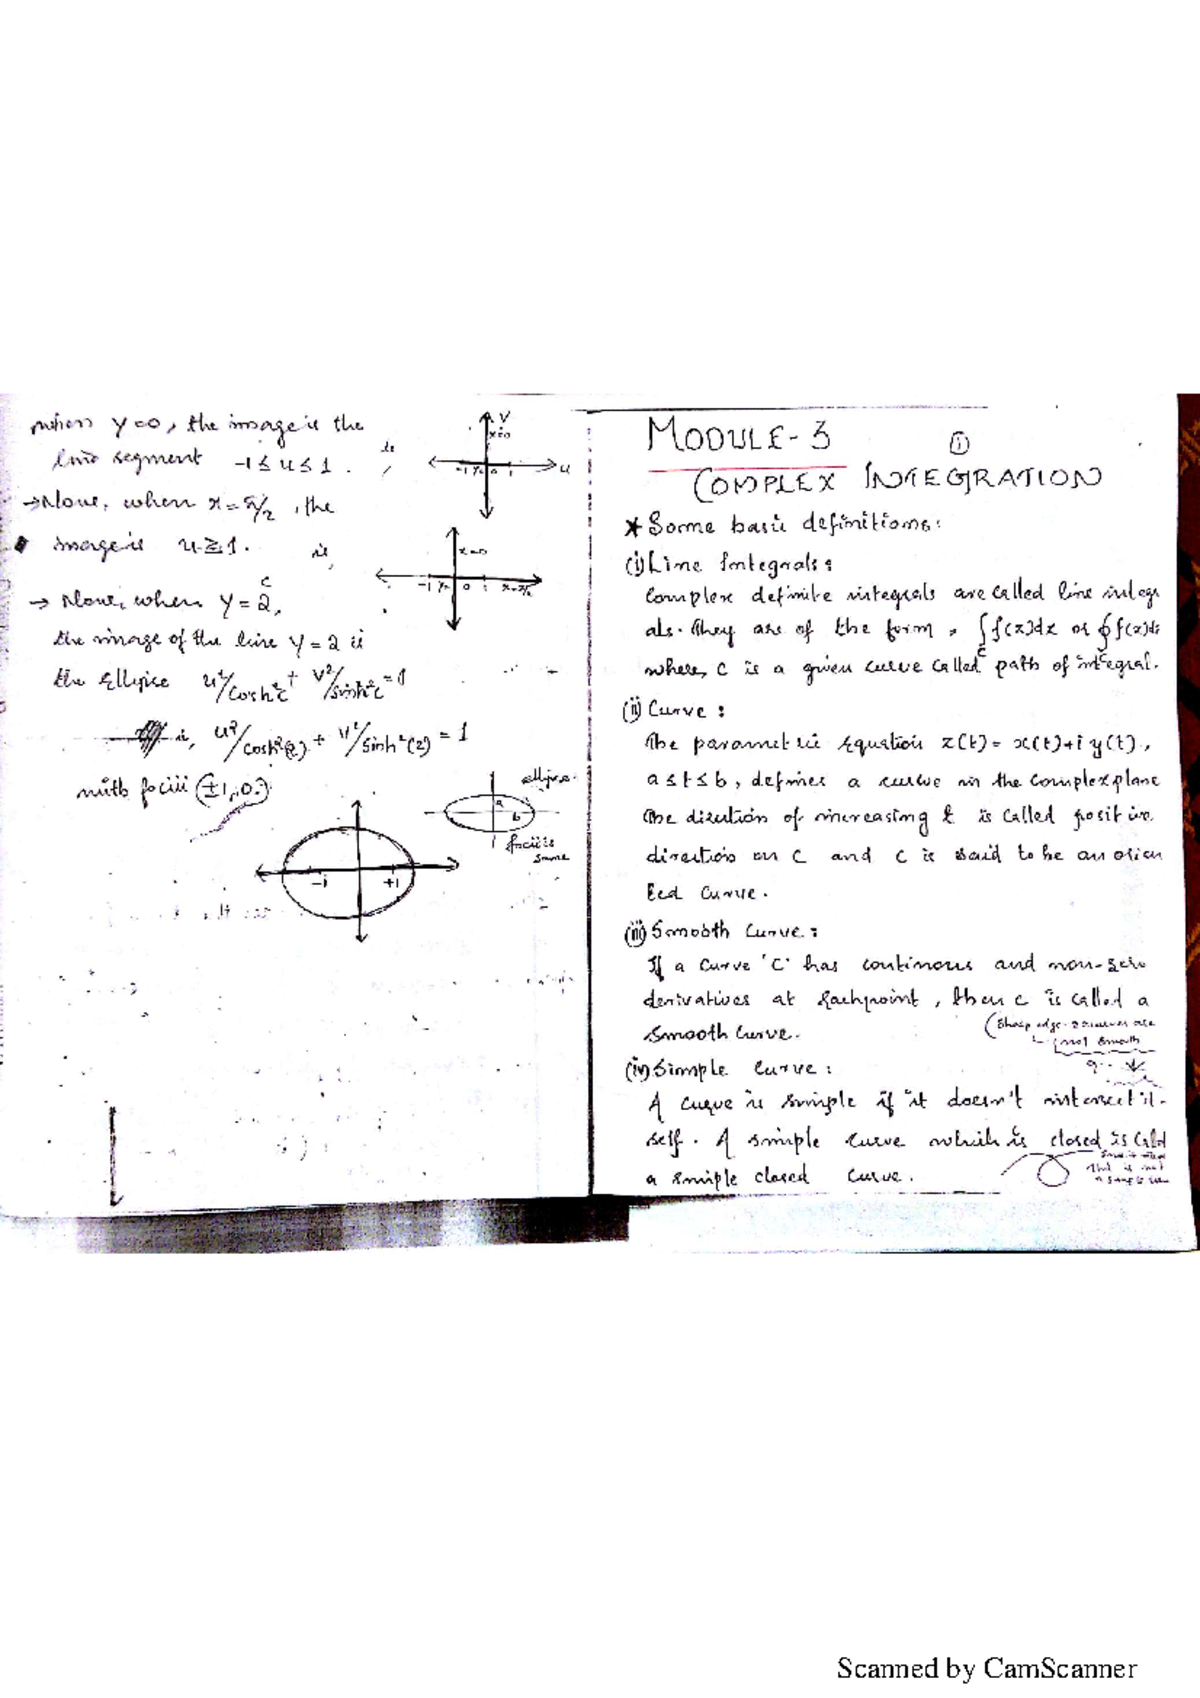 when y=0, the image is the
line segment -1 ≤ u ≤ 1.
→ Now, when x = π/2, the
image is u ≥ 1.
→ Now, when y = 2, c
the image of the line y = 2 is
the Ellipse u²/cosh²c + v²/sinh²c = 1
u²/cosh²(2) + v²/sinh²(2) = 1
with focii (±1, 0)
v
x=0
-1 y=0 1
u
x=0
-1 y= 0 1 x=π/2
ellipse
a
b
focii is
same
-1 +1
MODULE-3 (i)
COMPLEX INTEGRATION
* Some basic definitions:
(i) Line Integrals:
Complex definite integrals are called line integr
als. They are of the form, ∫f(z)dz or ∮f(z)dz
c c
where, C is a given curve called path of integral.
(ii) Curve:
The parametric equation z(t) = x(t)+i y(t),
a≤t≤b, defines a curve in the complex plane
The direction of increasing t is called positive
direction on C and C is said to be an orien
ted curve.
(iii) Smooth Curve:
If a curve 'C' has continous and non-zero
derivatives at Each point, then C is called a
smooth curve. (Sharp edge curves are
not smooth
(iv) Simple Curve:
A curve is simple if it doesn't intersect it-
self. A simple curve which is closed is calld
a simple closed curve.
This is not
a simple
Scanned by CamScanner